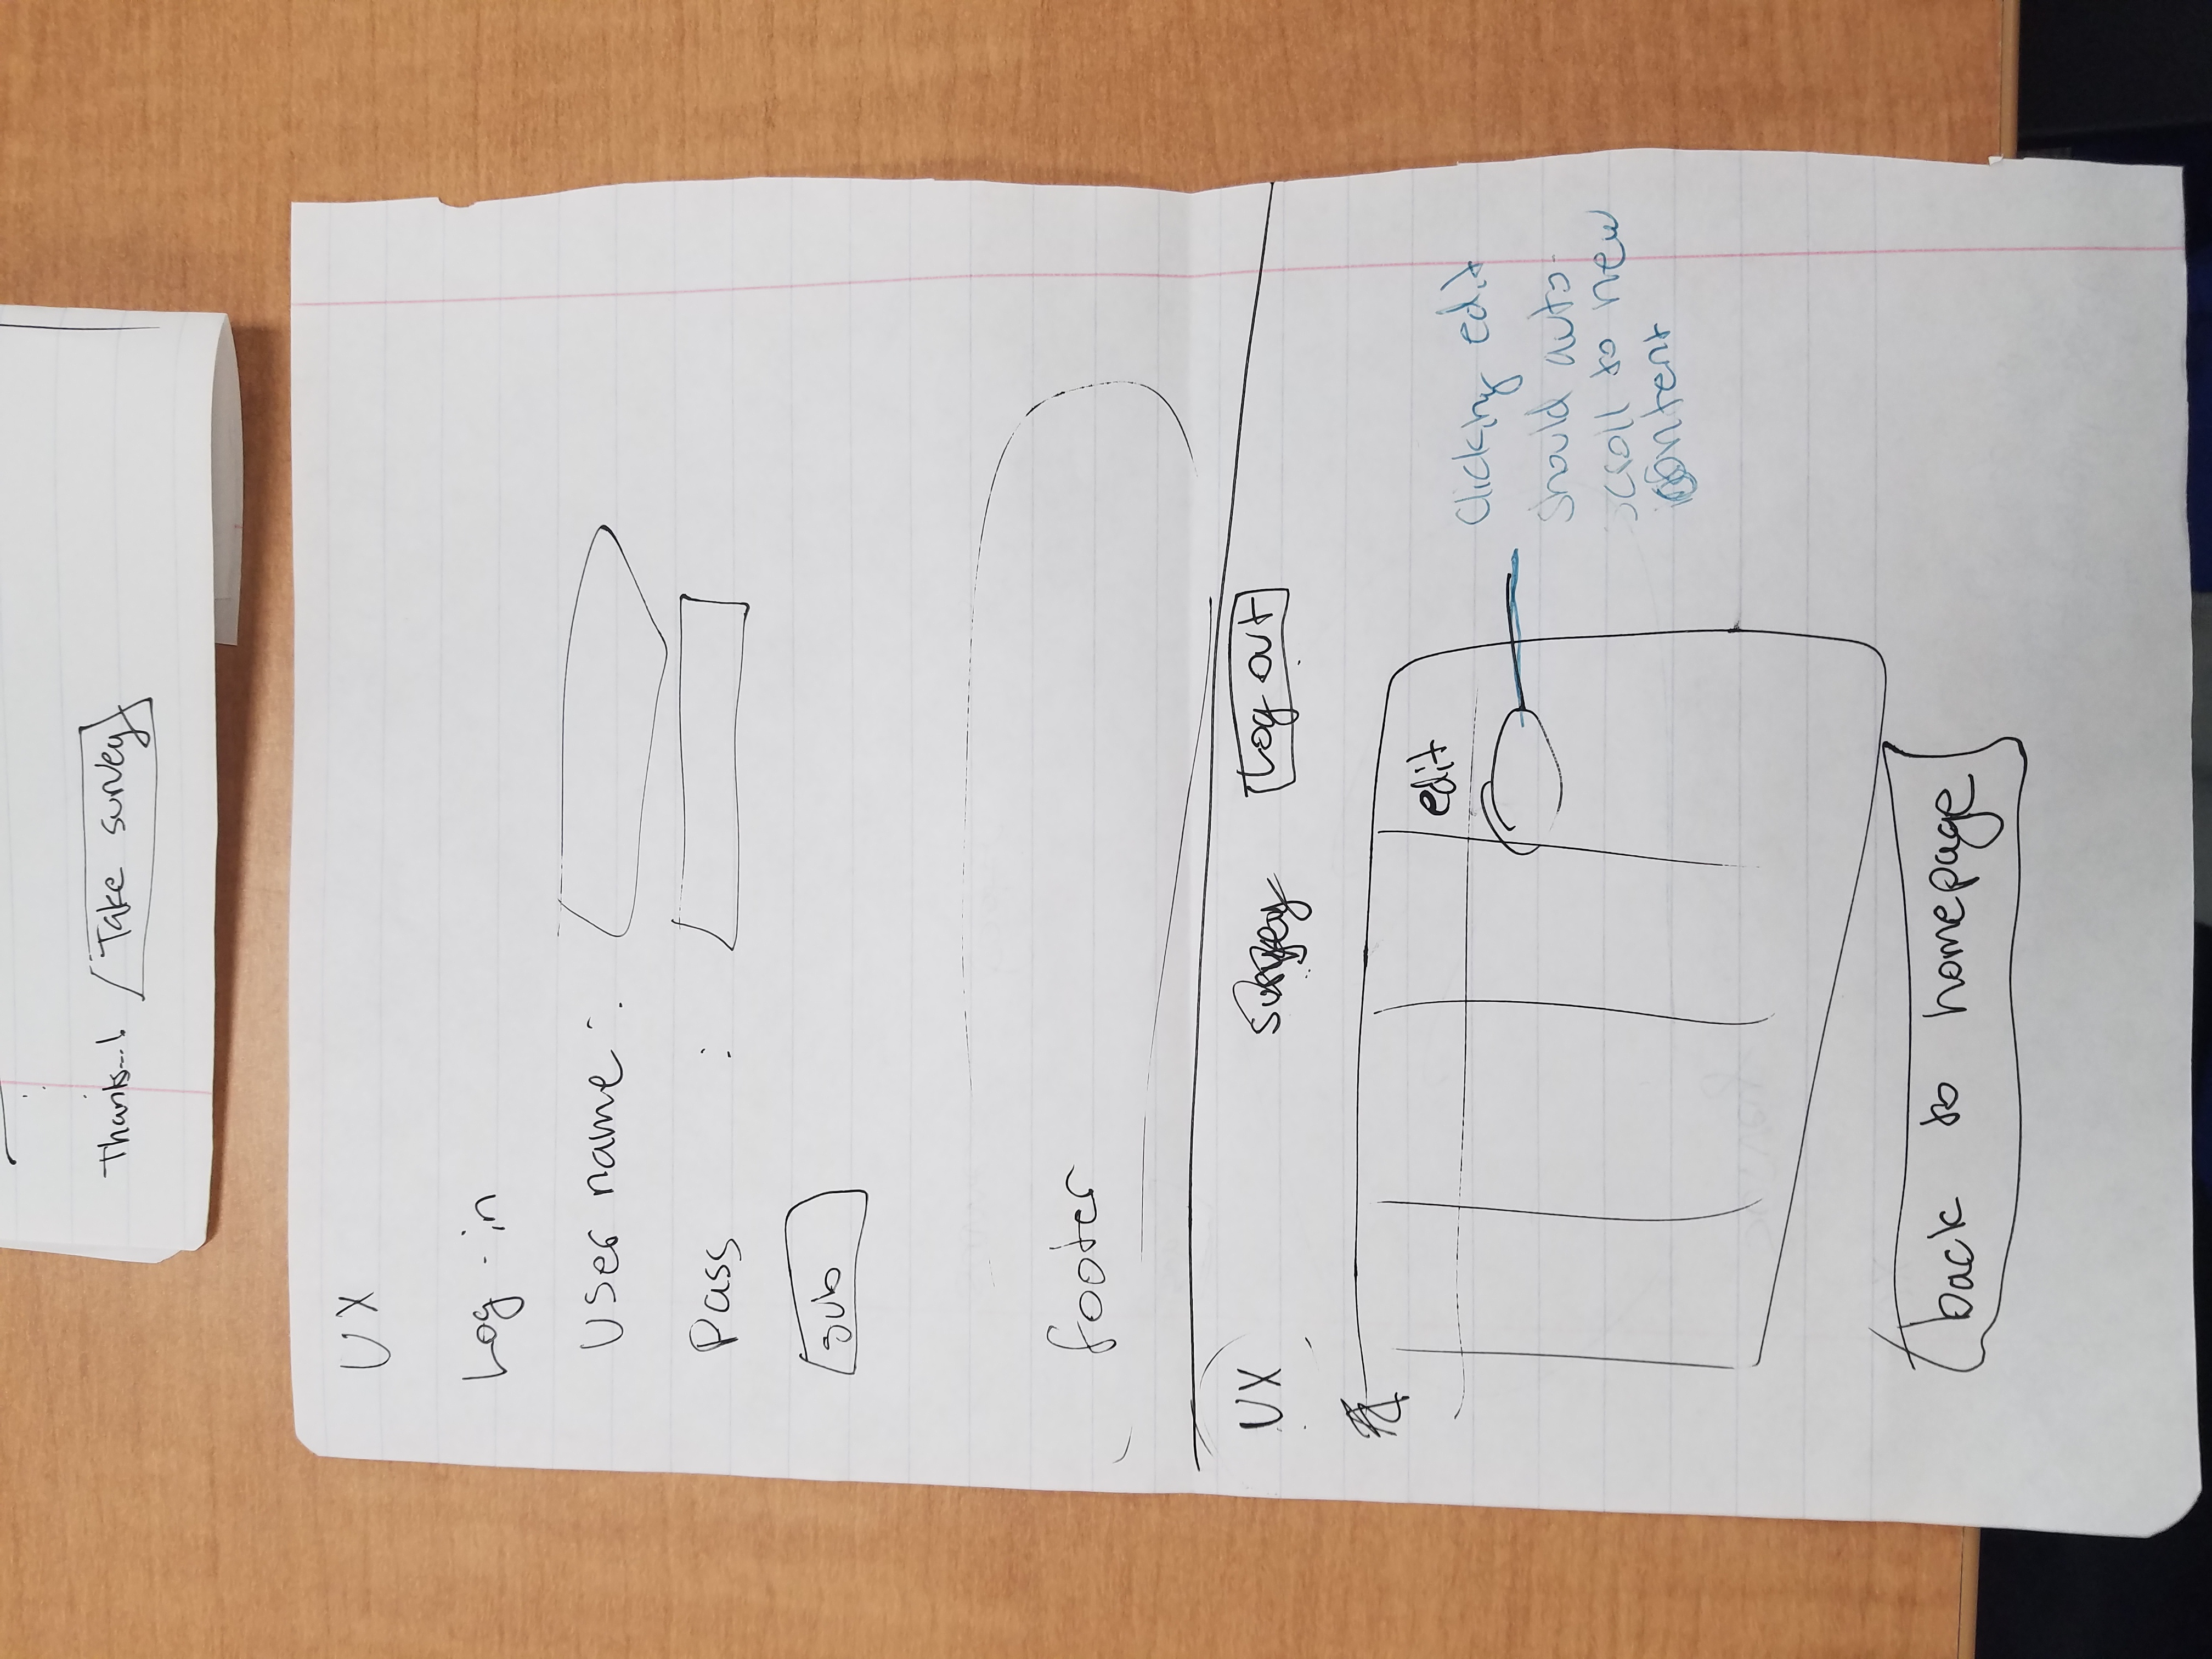 Thanks...! Take survey
UX
Log-in
User name :
Pass :
sub
footer
UX survey Log out
edit
Clicking edit
should auto-
scroll to new
content
back to homepage